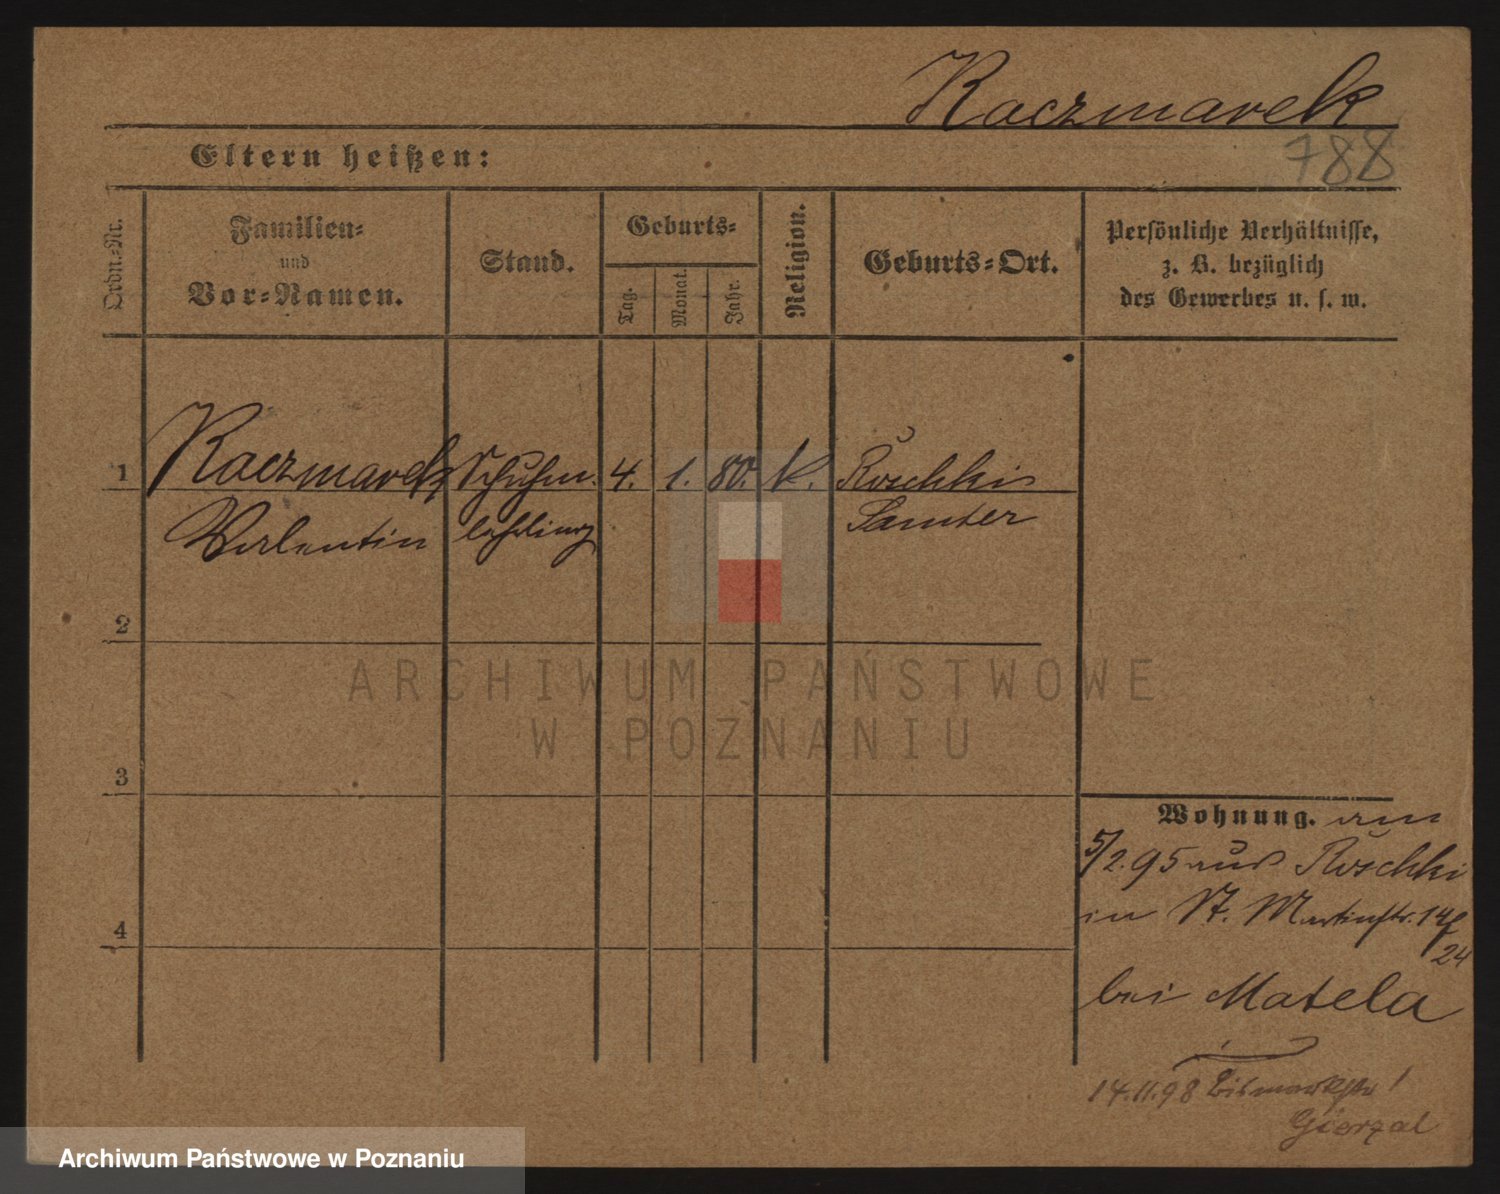 Kaczmarek
Eltern heißen:
788
Ordn.-Nr.
Familien-
und
Vor-Namen.
Stand.
Geburts-
Tag.
Monat.
Jahr.
Religion.
Geburts-Ort.
Persönliche Verhältnisse,
z. B. bezüglich
des Gewerbes u. s. w.
1
Kaczmarek Schuhm. 4. 1. 80. k. Ruschki
Valentin lehrling Samter
2
3
4
ARCHIWUM PAŃSTWOWE
W POZNANIU
Wohnung. am
5/2.95 aus Ruschki
in St. Martinstr. 14/
24
bei Matela
14.11.98 Bismarckstr 1
Gierzal
Archiwum Państwowe w Poznaniu